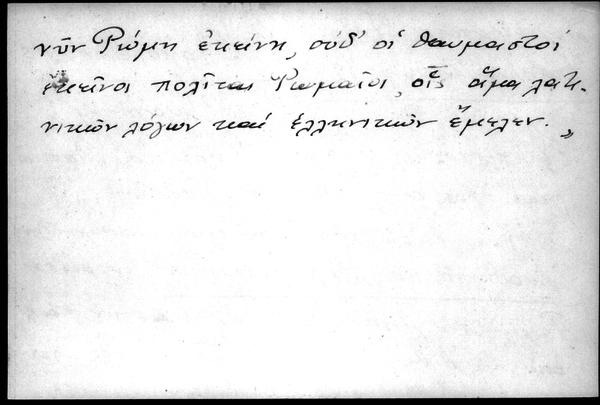 νῦν Ῥώμη ἐκείνη, οὐδ' οἱ θαυμαστοί
ἐκεῖνοι πολῖται Ῥωμαῖοι, οἷς ἅμα λατι-
νικῶν λόγων καί ἑλληνικῶν ἔμελεν.»